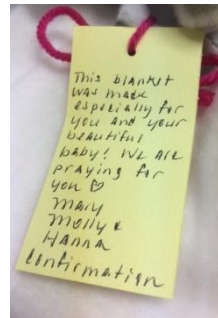 This blanket
was made
especially for
you and your
beautiful
baby! We are
praying for
you ♡
Mary
Molly &
Hanna
Confirmation